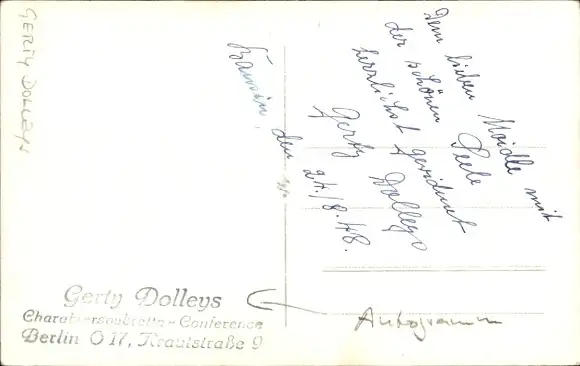 GERTY DOLLEYS
Dem lieben Maidle mit
der schönen Seele
herzlichst gewidmet
Gerty Dolleys
den 24./8.48.
Gerty Dolleys
Charaktersoubrette - Conference
Berlin O 17, Krautstraße 9
Autogramm